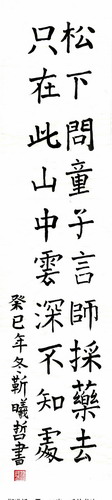 松下問童子言師採藥去
只在此山中雲深不知處
癸巳年冬靳曦哲書